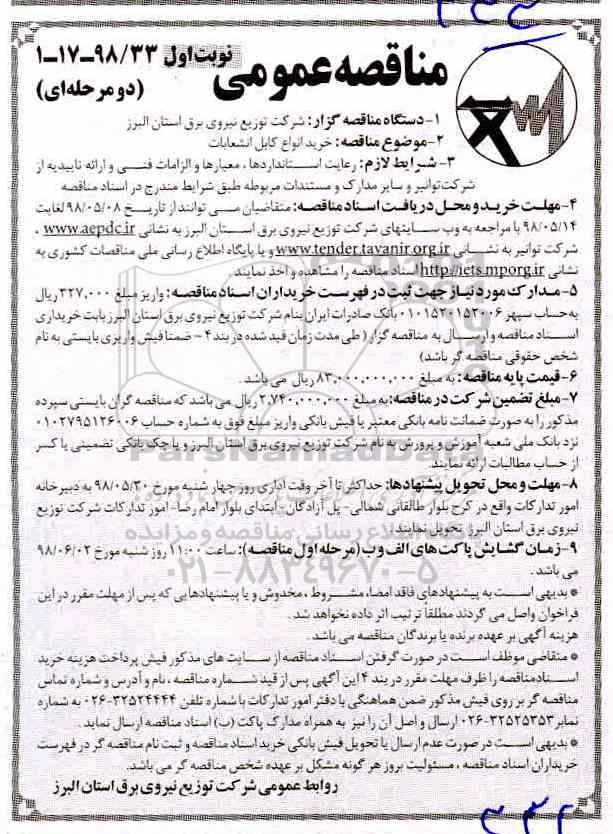 نوبت اول ۹۸/۳۳-۱۷-۱
مناقصه عمومی
(دو مرحله‌ای)
۱-دستگاه مناقصه گزار: شرکت توزیع نیروی برق استان البرز
۲-موضوع مناقصه: خرید انواع کابل انشعابات
۳- شرایط لازم: رعایت استانداردها، معیارها و الزامات فنی و ارائه تاییدیه از
شرکت توانیر و سایر مدارک و مستندات مربوطه طبق شرایط مندرج در اسناد مناقصه
۴-مهلت خرید و محل دریافت اسناد مناقصه: متقاضیان می توانند از تاریخ ۹۸/۰۵/۰۸ لغایت
۹۸/۰۵/۱۴ با مراجعه به وب سایتهای شرکت توزیع نیروی برق استان البرز به نشانی www.aepdc.ir ،
شرکت توانیر به نشانی www.tender.tavanir.org.ir و یا پایگاه اطلاع رسانی ملی مناقصات کشوری به
نشانی http://iets.mporg.ir اسناد مناقصه را مشاهده و اخذ نمایند.
۵-مدارک مورد نیاز جهت ثبت در فهرست خریداران اسناد مناقصه: واریز مبلغ ۳۲۷,۰۰۰ ریال
به حساب سپهر ۰۱۰۱۵۲۰۱۵۲۰۰۶ بانک صادرات ایران بنام شرکت توزیع نیروی برق استان البرز بابت خریداری
اسناد مناقصه و ارسال به مناقصه گزار ( طی مدت زمان قید شده در بند ۴ - ضمنا فیش واریزی بایستی به نام
شخص حقوقی مناقصه گر باشد)
۶-قیمت پایه مناقصه: به مبلغ ۸۳,۰۰۰,۰۰۰,۰۰۰ ریال می باشد .
۷-مبلغ تضمین شرکت در مناقصه: به مبلغ ۲,۷۴۰,۰۰۰,۰۰۰ ریال می باشد که مناقصه گران بایستی سپرده
مذکور را به صورت ضمانت نامه بانکی معتبر یا فیش بانکی واریز مبلغ فوق به شماره حساب ۰۱۰۲۷۹۵۱۲۶۰۰۶
نزد بانک ملی شعبه آموزش و پرورش به نام شرکت توزیع نیروی برق استان البرز و یا چک بانکی تضمینی یا کسر
از حساب مطالبات ارائه نمایند.
۸-مهلت و محل تحویل پیشنهادها: حداکثر تا آخر وقت اداری روز چهار شنبه مورخ ۹۸/۰۵/۳۰ به دبیرخانه
امور تدارکات واقع در کرج بلوار طالقانی شمالی- پل آزادگان-ابتدای بلوار امام رضا- امور تدارکات شرکت توزیع
نیروی برق استان البرز تحویل نمایند.
۹-زمان گشایش پاکت های الف و ب (مرحله اول مناقصه): ساعت ۱۱:۰۰ روز شنبه مورخ ۹۸/۰۶/۰۲
می باشد .
* بدیهی است به پیشنهادهای فاقد امضا، مشروط ، مخدوش و یا پیشنهادهایی که پس از مهلت مقرر در این
فراخوان واصل می گردند مطلقاً ترتیب اثر داده نخواهد شد .
هزینه آگهی بر عهده برنده یا برندگان مناقصه می باشد.
* متقاضی موظف است در صورت گرفتن اسناد مناقصه از سایت های مذکور فیش پرداخت هزینه خرید
اسناد مناقصه را ظرف مهلت مقرر در بند ۴ این آگهی پس از قید شماره مناقصه ، نام و آدرس و شماره تماس
مناقصه گر بر روی فیش مذکور ضمن هماهنگی با دفتر امور تدارکات با شماره تلفن ۳۲۵۲۴۴۴۴-۰۲۶ به شماره
نمابر ۳۲۵۲۵۳۵۳-۰۲۶ ارسال و اصل آن را نیز به همراه مدارک پاکت (ب) اسناد مناقصه ارسال نماید .
* بدیهی است در صورت عدم ارسال یا تحویل فیش بانکی خرید اسناد مناقصه و ثبت نام مناقصه گر در فهرست
خریداران اسناد مناقصه ، مسئولیت بروز هر گونه مشکل بر عهده شخص مناقصه گر می باشد.
روابط عمومی شرکت توزیع نیروی برق استان البرز
ParsNamadData
۰۲۱-۸۸۳۴۹۶۷۰-۵